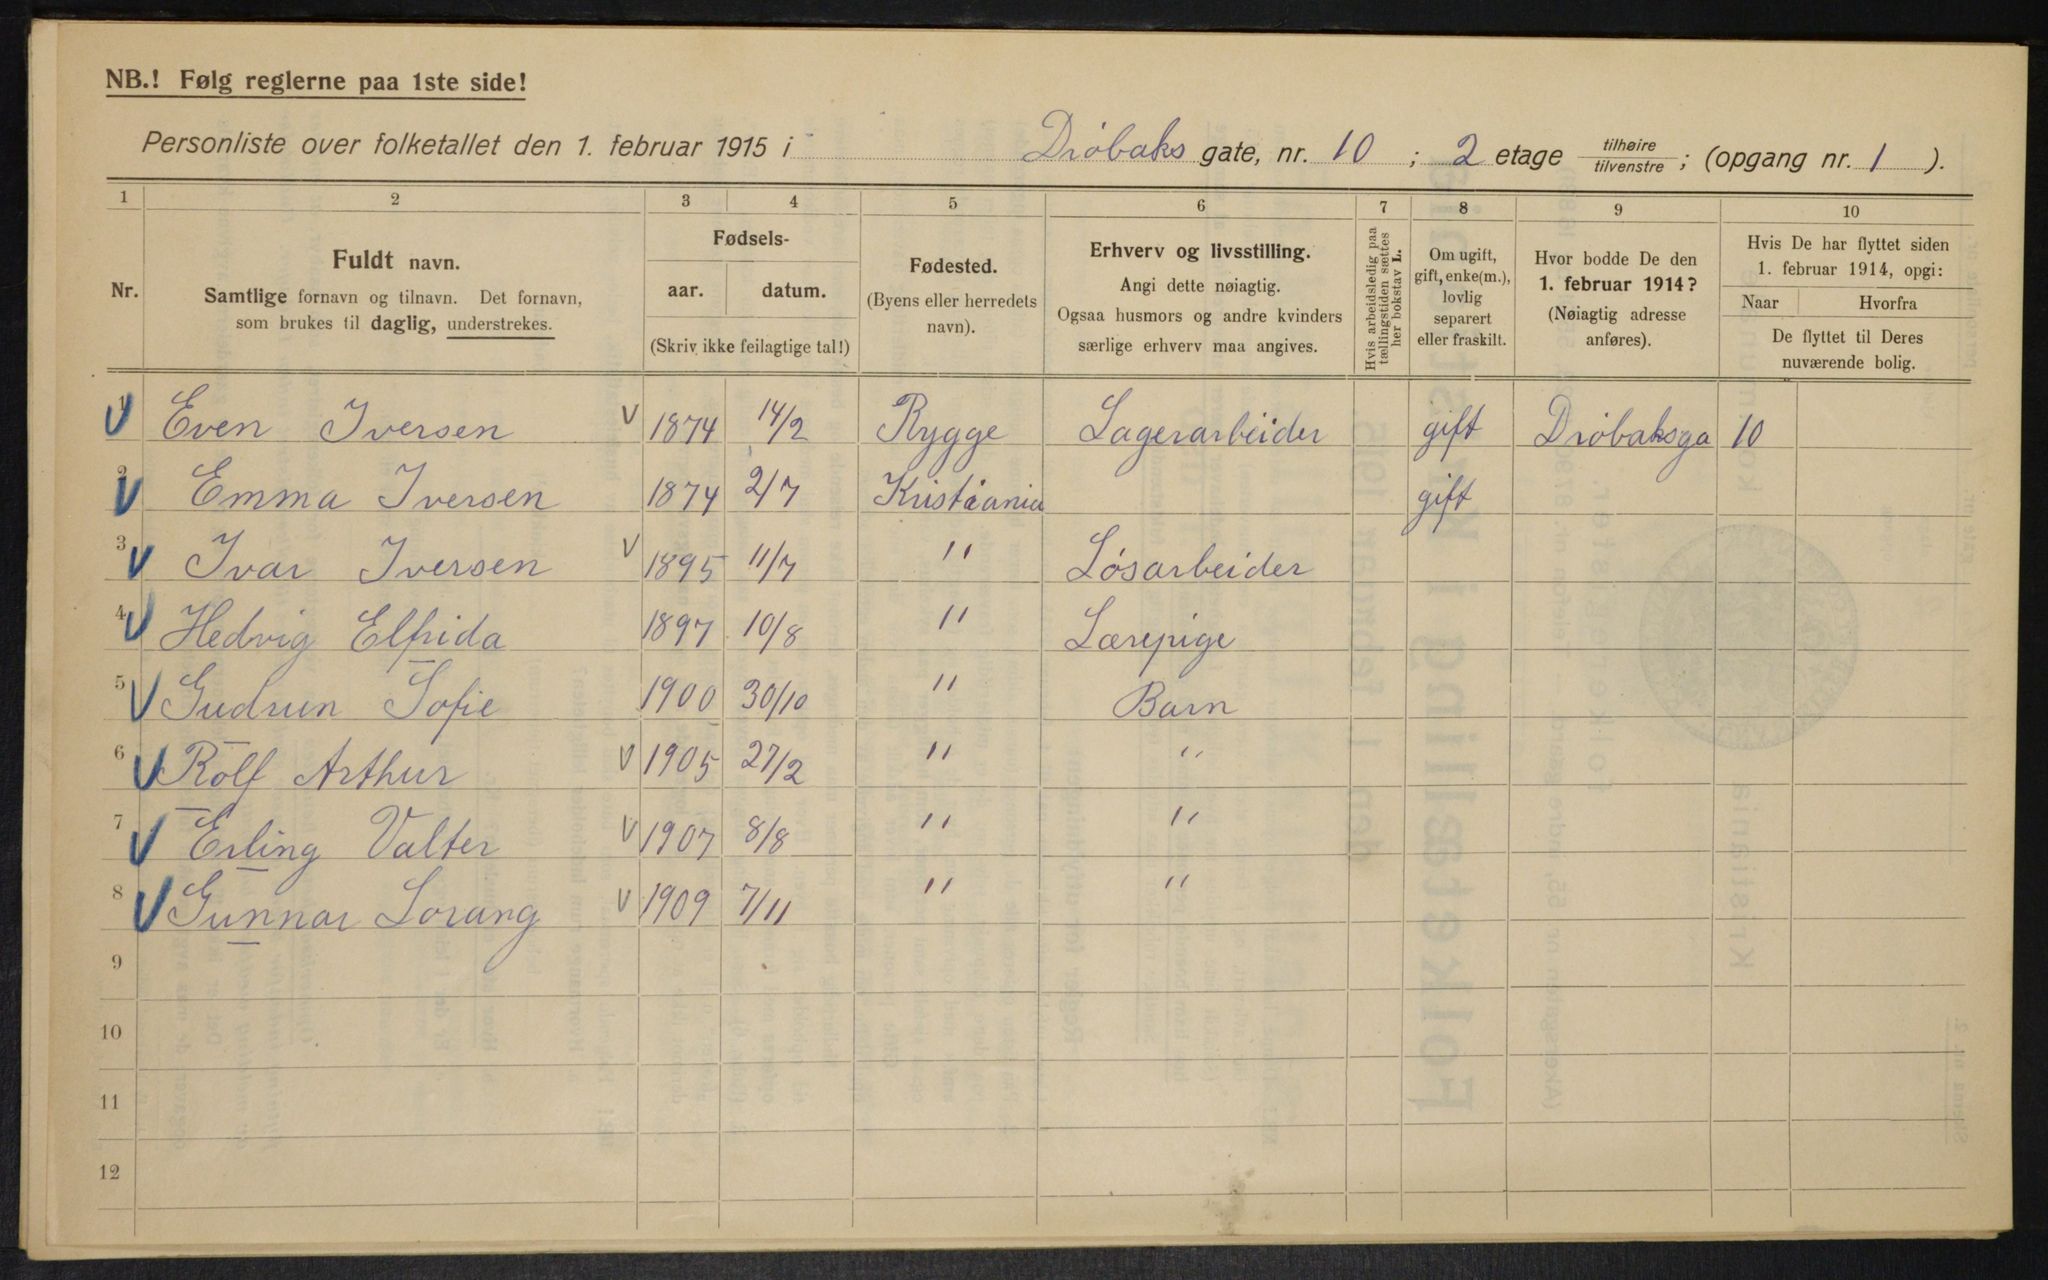 NB.! Følg reglerne paa 1ste side!
Personliste over folketallet den 1. februar 1915 i Drøbaks gate, nr. 10 ; 2 etage tilhøire / tilvenstre ; (opgang nr. 1 ).
1 2 3 4 5 6 7 8 9 10
Nr.
Fuldt navn.
Samtlige fornavn og tilnavn. Det fornavn,
som brukes til daglig, understrekes.
Fødsels-
aar. datum.
(Skriv ikke feilagtige tal!)
Fødested.
(Byens eller herredets
navn).
Erhverv og livsstilling.
Angi dette nøiagtig.
Ogsaa husmors og andre kvinders
særlige erhverv maa angives.
Hvis arbeidsledig paa
tællingstiden sættes
her bokstav L.
Om ugift,
gift, enke(m.),
lovlig
separert
eller fraskilt.
Hvor bodde De den
1. februar 1914?
(Nøiagtig adresse
anføres).
Hvis De har flyttet siden
1. februar 1914, opgi:
Naar Hvorfra
De flyttet til Deres
nuværende bolig.
1 Even Iversen 1874 14/2 Rygge Lagerarbeider gift Drøbaksga 10
2 Emma Iversen 1874 2/7 Kristiania gift
3 Ivar Iversen 1895 11/7 " Løsarbeider
4 Hedvig Elfrida 1897 10/8 " Lærepige
5 Gudrun Sofie 1900 30/10 " Barn
6 Rolf Arthur 1905 27/2 " "
7 Erling Valter 1907 8/8 " "
8 Gunnar Lorang 1909 7/11 " "
9
10
11
12